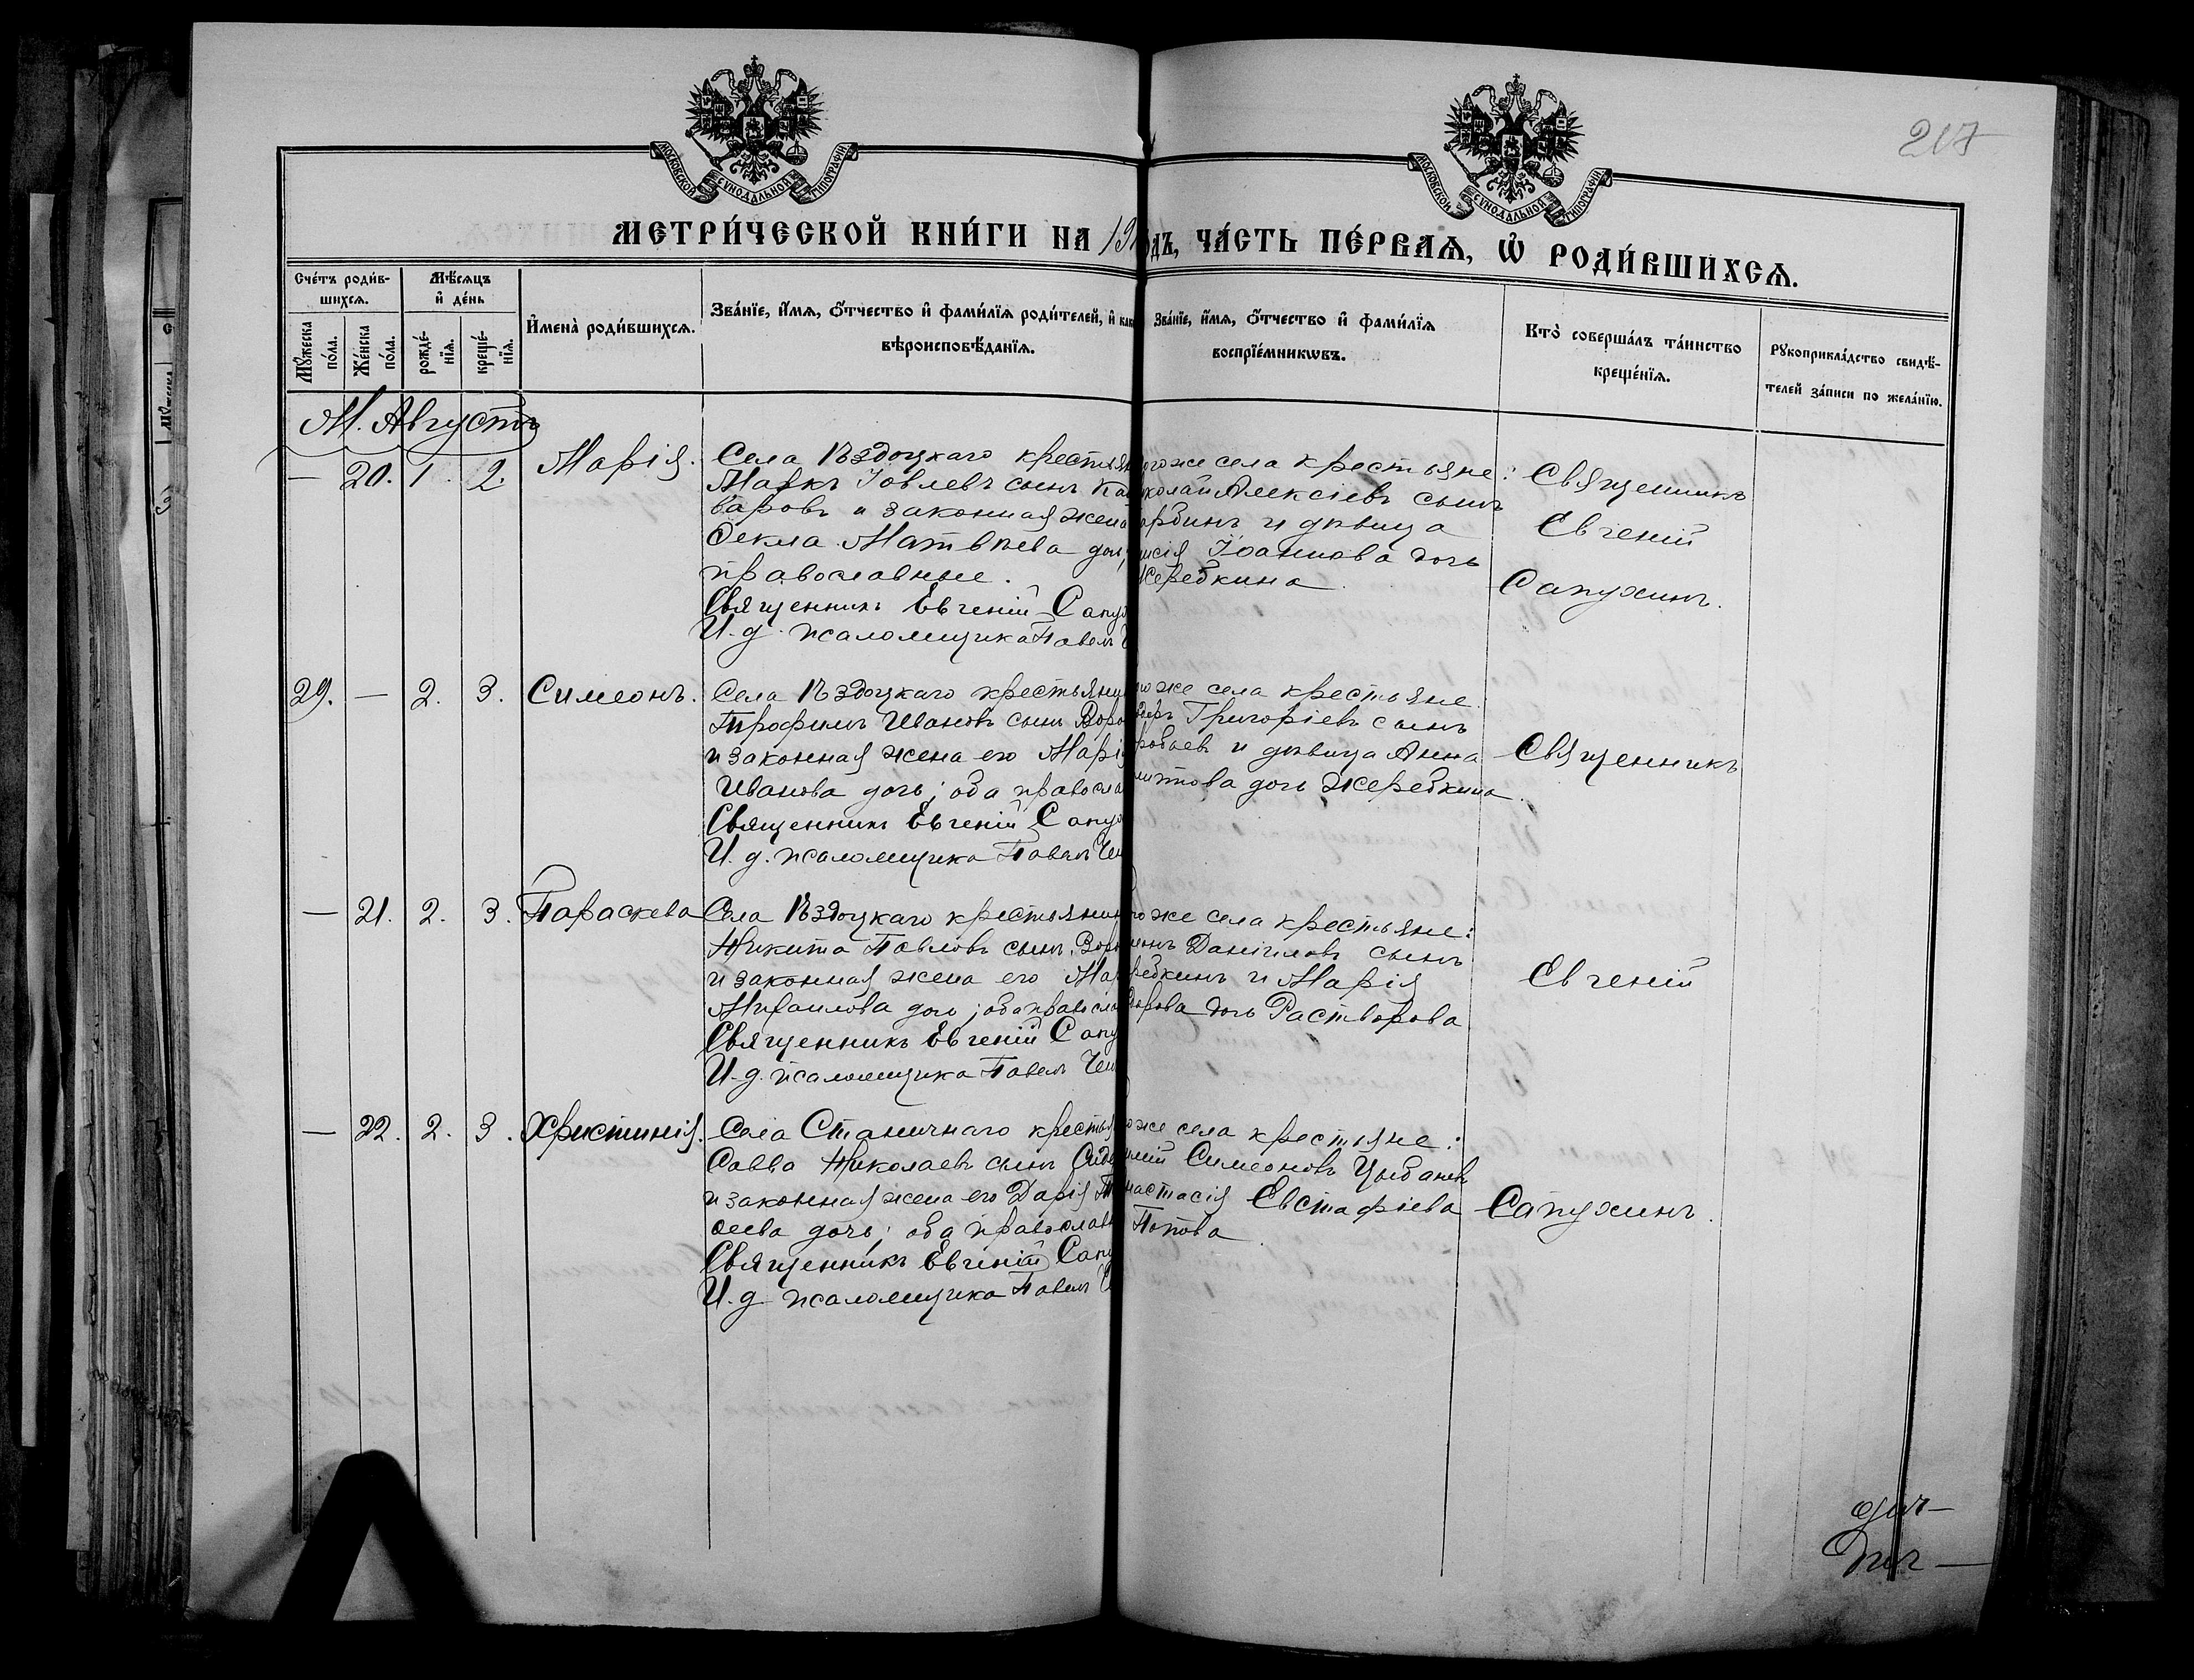 217
МОСКОВСКОЙ СУНОДАЛЬНОЙ ТИПОГРАФІИ
МОСКОВСКОЙ СУНОДАЛЬНОЙ ТИПОГРАФІИ
МЕТРИ́ЧЕСКОЙ КНИ́ГИ НА 19
ДЪ, ЧА́СТЬ ПЕ́РВАѦ, Ѡ҆ РОДИ́ВШИХСѦ.
Сче́тъ роди́в-
шихсѧ.
Мѣ́сѧцъ
и҆ де́нь
Мꙋ́жеска
по́ла.
Же́нска
по́ла.
рожде́-
нїѧ.
креще́-
нїѧ.
И҆мена̀ роди́вшихсѧ.
Зва́нїе, и҆́мѧ, ѻ҆́тчество и҆ фами́лїѧ роди́телей, и҆
вѣроисповѣ́данїѧ.
Зва́нїе, и҆́мѧ, ѻ҆́тчество и҆ фами́лїѧ
воспрїе́мникѡвъ.
Кто̀ соверша́лъ та́инство
креще́нїѧ.
Рꙋкоприкла́дство свидѣ́-
телей за́писи по жела́нїю.
М. Августъ
— 20. 1. 2. Марія.
Села Ѣздоцкаго крестьян
Маркъ Іовлевъ сынъ Ка
варовъ и законная жена
Ѳекла Матвѣева доч
православные.
Священникъ Евгеній Сапух
И. д. псаломщика Павелъ
ого же села крестьяне:
колай Алексіевъ сынъ
рбинъ и дѣвица
исія Іоаннова дочь
Жеребкина
Священникъ
Евгеній
Сапухинъ.
29. — 2. 3. Симеонъ.
Села Ѣздоцкаго крестьянин
Трофимъ Ивановъ сынъ Воро
и законная жена его Марі
Иванова дочь; оба правосла
Священникъ Евгеній Сапух
И. д. псаломщика Павелъ Чеп
же села крестьяне
Григоріевъ сынъ
робьевъ и дѣвица Анна
итова дочь Жеребкина.
Священникъ
— 21. 2. 3. Параскева
Села Ѣздоцкаго крестьянин
Никита Павловъ сынъ Воро
и законная жена его Мар
Михаилова дочь; оба правосла
Священникъ Евгеній Сапу
И. д. псаломщика Павелъ Чеп
го же села крестьяне:
Даніиловъ сынъ
ребкинъ и Марія
дорова дочь Растворова
Евгеній
— 22. 2. 3. Христинія.
Села Станичнаго крестья
Савва Николаевъ сынъ Сидо
и законная жена его Дарія
сеева дочь; оба православн
Священникъ Евгеній Сапу
И. д. псаломщика Павелъ
оже села крестьяне:
Симеоновъ Цыбаневъ
настасія Евстафіева
Попова
Сапухинъ.